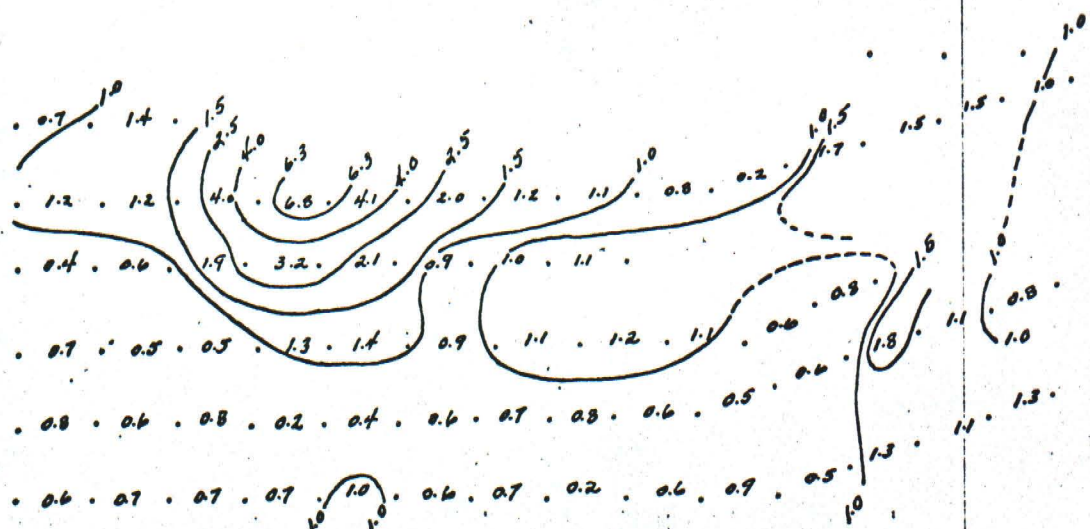 1.0
1.0
0.7 1.4 1.5 1.5 1.5 1.0
2.5 4.0 6.3 6.3 4.0 2.5 1.5 1.0 1.0 1.5 1.7
1.2 1.2 4.0 6.8 4.1 2.0 1.2 1.1 0.8 0.2
0.4 0.6 1.9 3.2 2.1 0.9 1.0 1.1 0.8 1.5 1.0 0.8
0.7 0.5 0.5 1.3 1.4 0.9 1.1 1.2 1.1 0.6 1.8 1.1 1.0
0.8 0.6 0.8 0.2 0.4 0.6 0.7 0.8 0.6 0.5 0.6 1.3
0.6 0.7 0.7 0.7 1.0 0.6 0.7 0.2 0.6 0.9 0.5 1.3 1.1
1.0 1.0 1.0